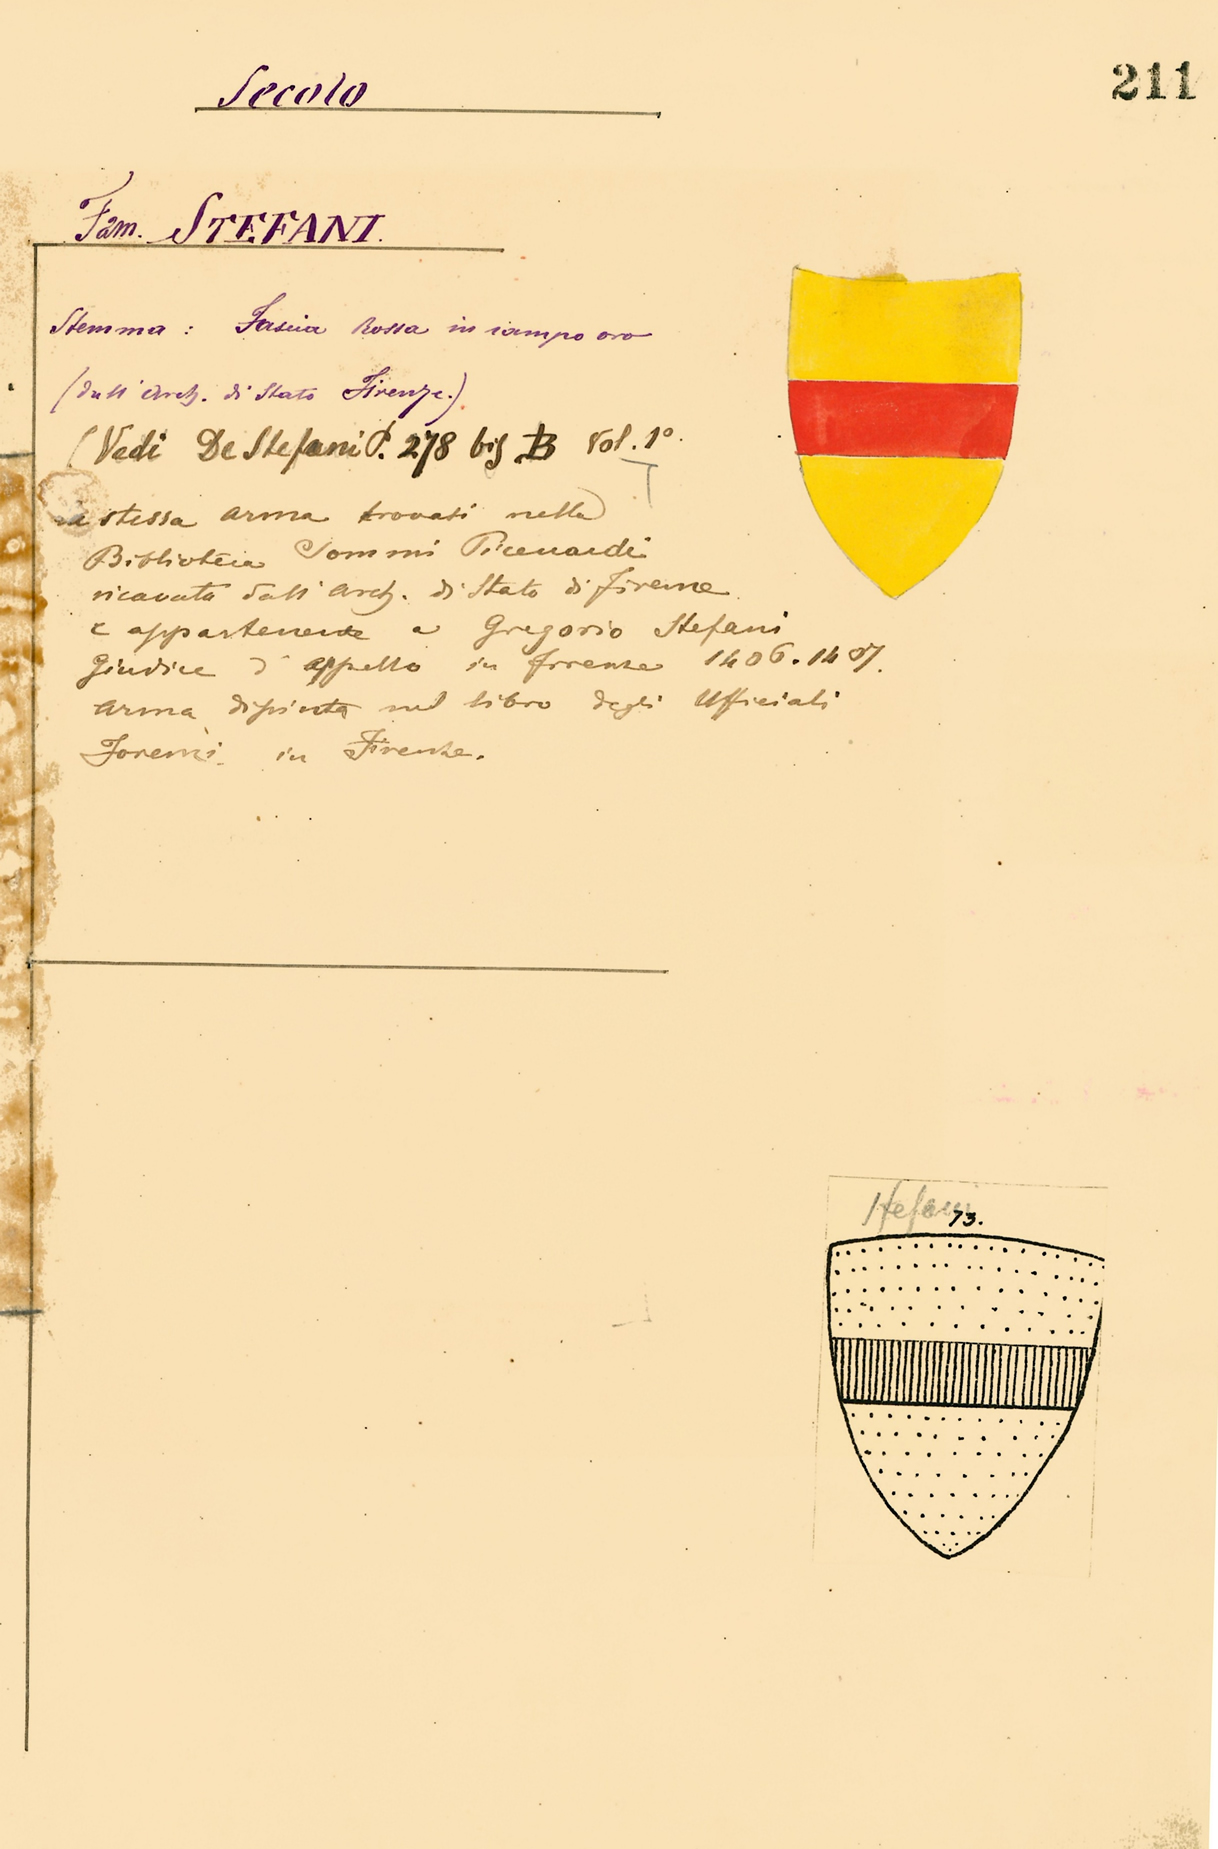 Secolo
211
Fam. STEFANI.
Stemma : Fascia Rossa in campo oro
(dall'Arch. di Stato Firenze.)
(Vedi De Stefani P. 278 bis B Vol. 1°.
la stessa arma trovasi nella
Biblioteca Sommi Picenardi
ricavata dall'Arch. di Stato di Firenze
e appartenente a Gregorio Stefani
Giudice d'appello in Firenze 1406.1407.
arma dipinta nel libro degli Ufficiali
Forensi in Firenze.
Stefani
73.